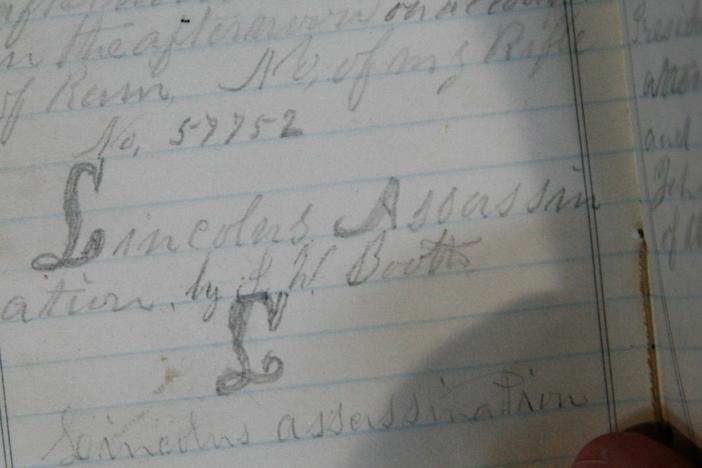 in the afternoon on account
of Rain, No, of my Rifle
No, 57752
Lincolns Assassin
ation, by J. W. Booth
L
Lincolns assassination
and